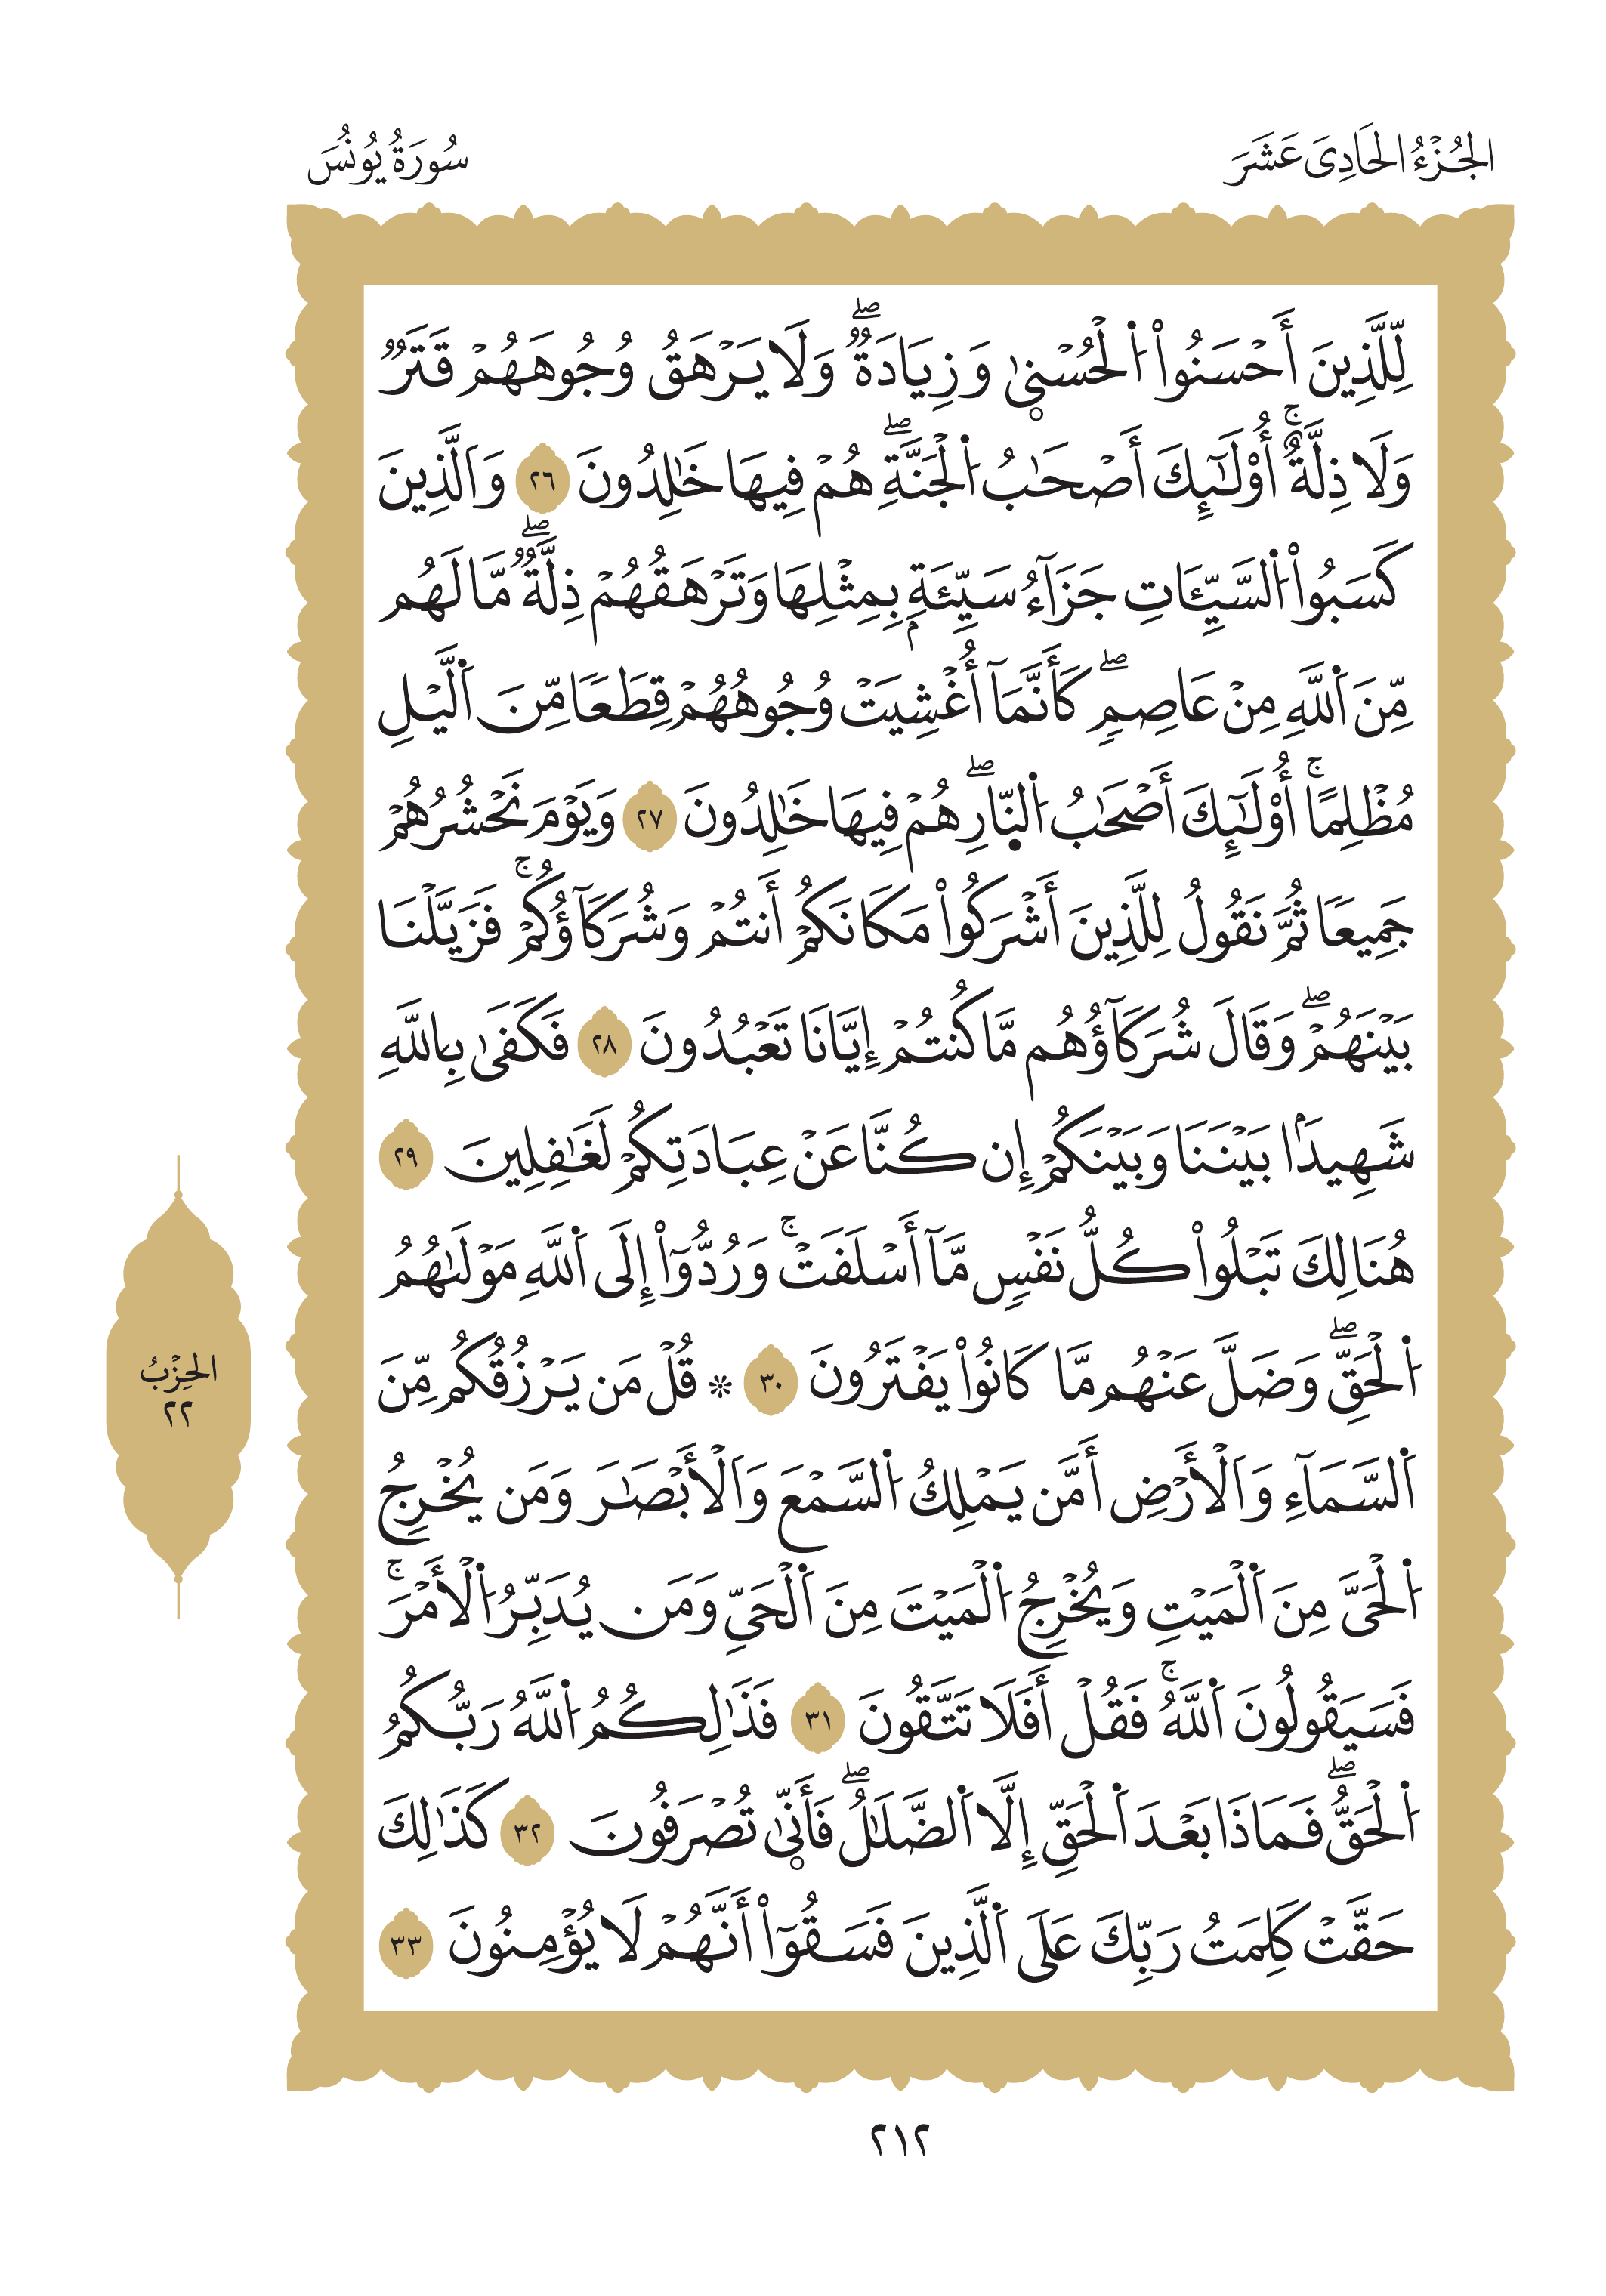 الجُزْءُ الحَادِىَ عَشَرَ
سُورَةُ يُونُسَ
لِّلَّذِينَ أَحْسَنُوا۟ اُ۬لْحُسْن۪ىٰ وَزِيَادَةٌۖ وَلَا يَرْهَقُ وُجُوهَهُمْ قَتَرٌ
وَلَا ذِلَّةٌۚ أُو۟لَٰٓئِكَ أَصْحَٰبُ اُ۬لْجَنَّةِۖ هُمْ فِيهَا خَٰلِدُونَ ٢٦ وَاَلَّذِينَ
كَسَبُوا۟ اُ۬لسَّيِّـَٔاتِ جَزَآءُ سَيِّئَةِۭ بِمِثْلِهَا وَتَرْهَقُهُمْ ذِلَّةٌۖ مَّا لَهُم
مِّنَ اَ۬للَّهِ مِنْ عَاصِمٍۖ كَأَنَّمَآ أُغْشِيَتْ وُجُوهُهُمْ قِطَعًا مِّنَ اَ۬لَّيْلِ
مُظْلِمًاۚ أُو۟لَٰٓئِكَ أَصْحَٰبُ اُ۬لنّ۪ارِۖ هُمْ فِيهَا خَٰلِدُونَ ٢٧ وَيَوْمَ نَحْشُرُهُمْ
جَمِيعًا ثُمَّ نَقُولُ لِلَّذِينَ أَشْرَكُوا۟ مَكَانَكُمْ أَنتُمْ وَشُرَكَآؤُكُمْۚ فَزَيَّلْنَا
بَيْنَهُمْۖ وَقَالَ شُرَكَآؤُهُم مَّا كُنتُمْ إِيَّانَا تَعْبُدُونَ ٢٨ فَكَفَىٰ بِاللَّهِ
شَهِيدَۢا بَيْنَنَا وَبَيْنَكُمْ إِن كُنَّا عَنْ عِبَادَتِكُمْ لَغَٰفِلِينَ ٢٩
هُنَالِكَ تَبْلُوا۟ كُلُّ نَفْسٍ مَّآ أَسْلَفَتْۚ وَرُدُّوٓا۟ إِلَى اَ۬للَّهِ مَوْلَىٰهُمُ
اُ۬لْحَقِّۖ وَضَلَّ عَنْهُم مَّا كَانُوا۟ يَفْتَرُونَ ٣٠ ۞ قُلْ مَن يَرْزُقُكُم مِّنَ
اَ۬لسَّمَآءِ وَاَلْأَرْضِ أَمَّن يَمْلِكُ اُ۬لسَّمْعَ وَاَلْأَبْصَٰرَ وَمَن يُخْرِجُ
اُ۬لْحَيَّ مِنَ اَ۬لْمَيْتِ وَيُخْرِجُ اُ۬لْمَيْتَ مِنَ اَ۬لْحَيِّ وَمَن يُدَبِّرُ اُ۬لْأَمْرَۚ
فَسَيَقُولُونَ اَ۬للَّهُۚ فَقُلْ أَفَلَا تَتَّقُونَ ٣١ فَذَٰلِكُمُ اُ۬للَّهُ رَبُّكُمُ
اُ۬لْحَقُّۖ فَمَاذَا بَعْدَ اَ۬لْحَقِّ إِلَّا اَ۬لضَّلَٰلُۖ فَأَنّ۪ىٰ تُصْرَفُونَ ٣٢ كَذَٰلِكَ
حَقَّتْ كَلِمَتُ رَبِّكَ عَلَى اَ۬لَّذِينَ فَسَقُوٓا۟ أَنَّهُمْ لَا يُؤْمِنُونَ ٣٣
الحِزْبُ
٢٢
٢١٢